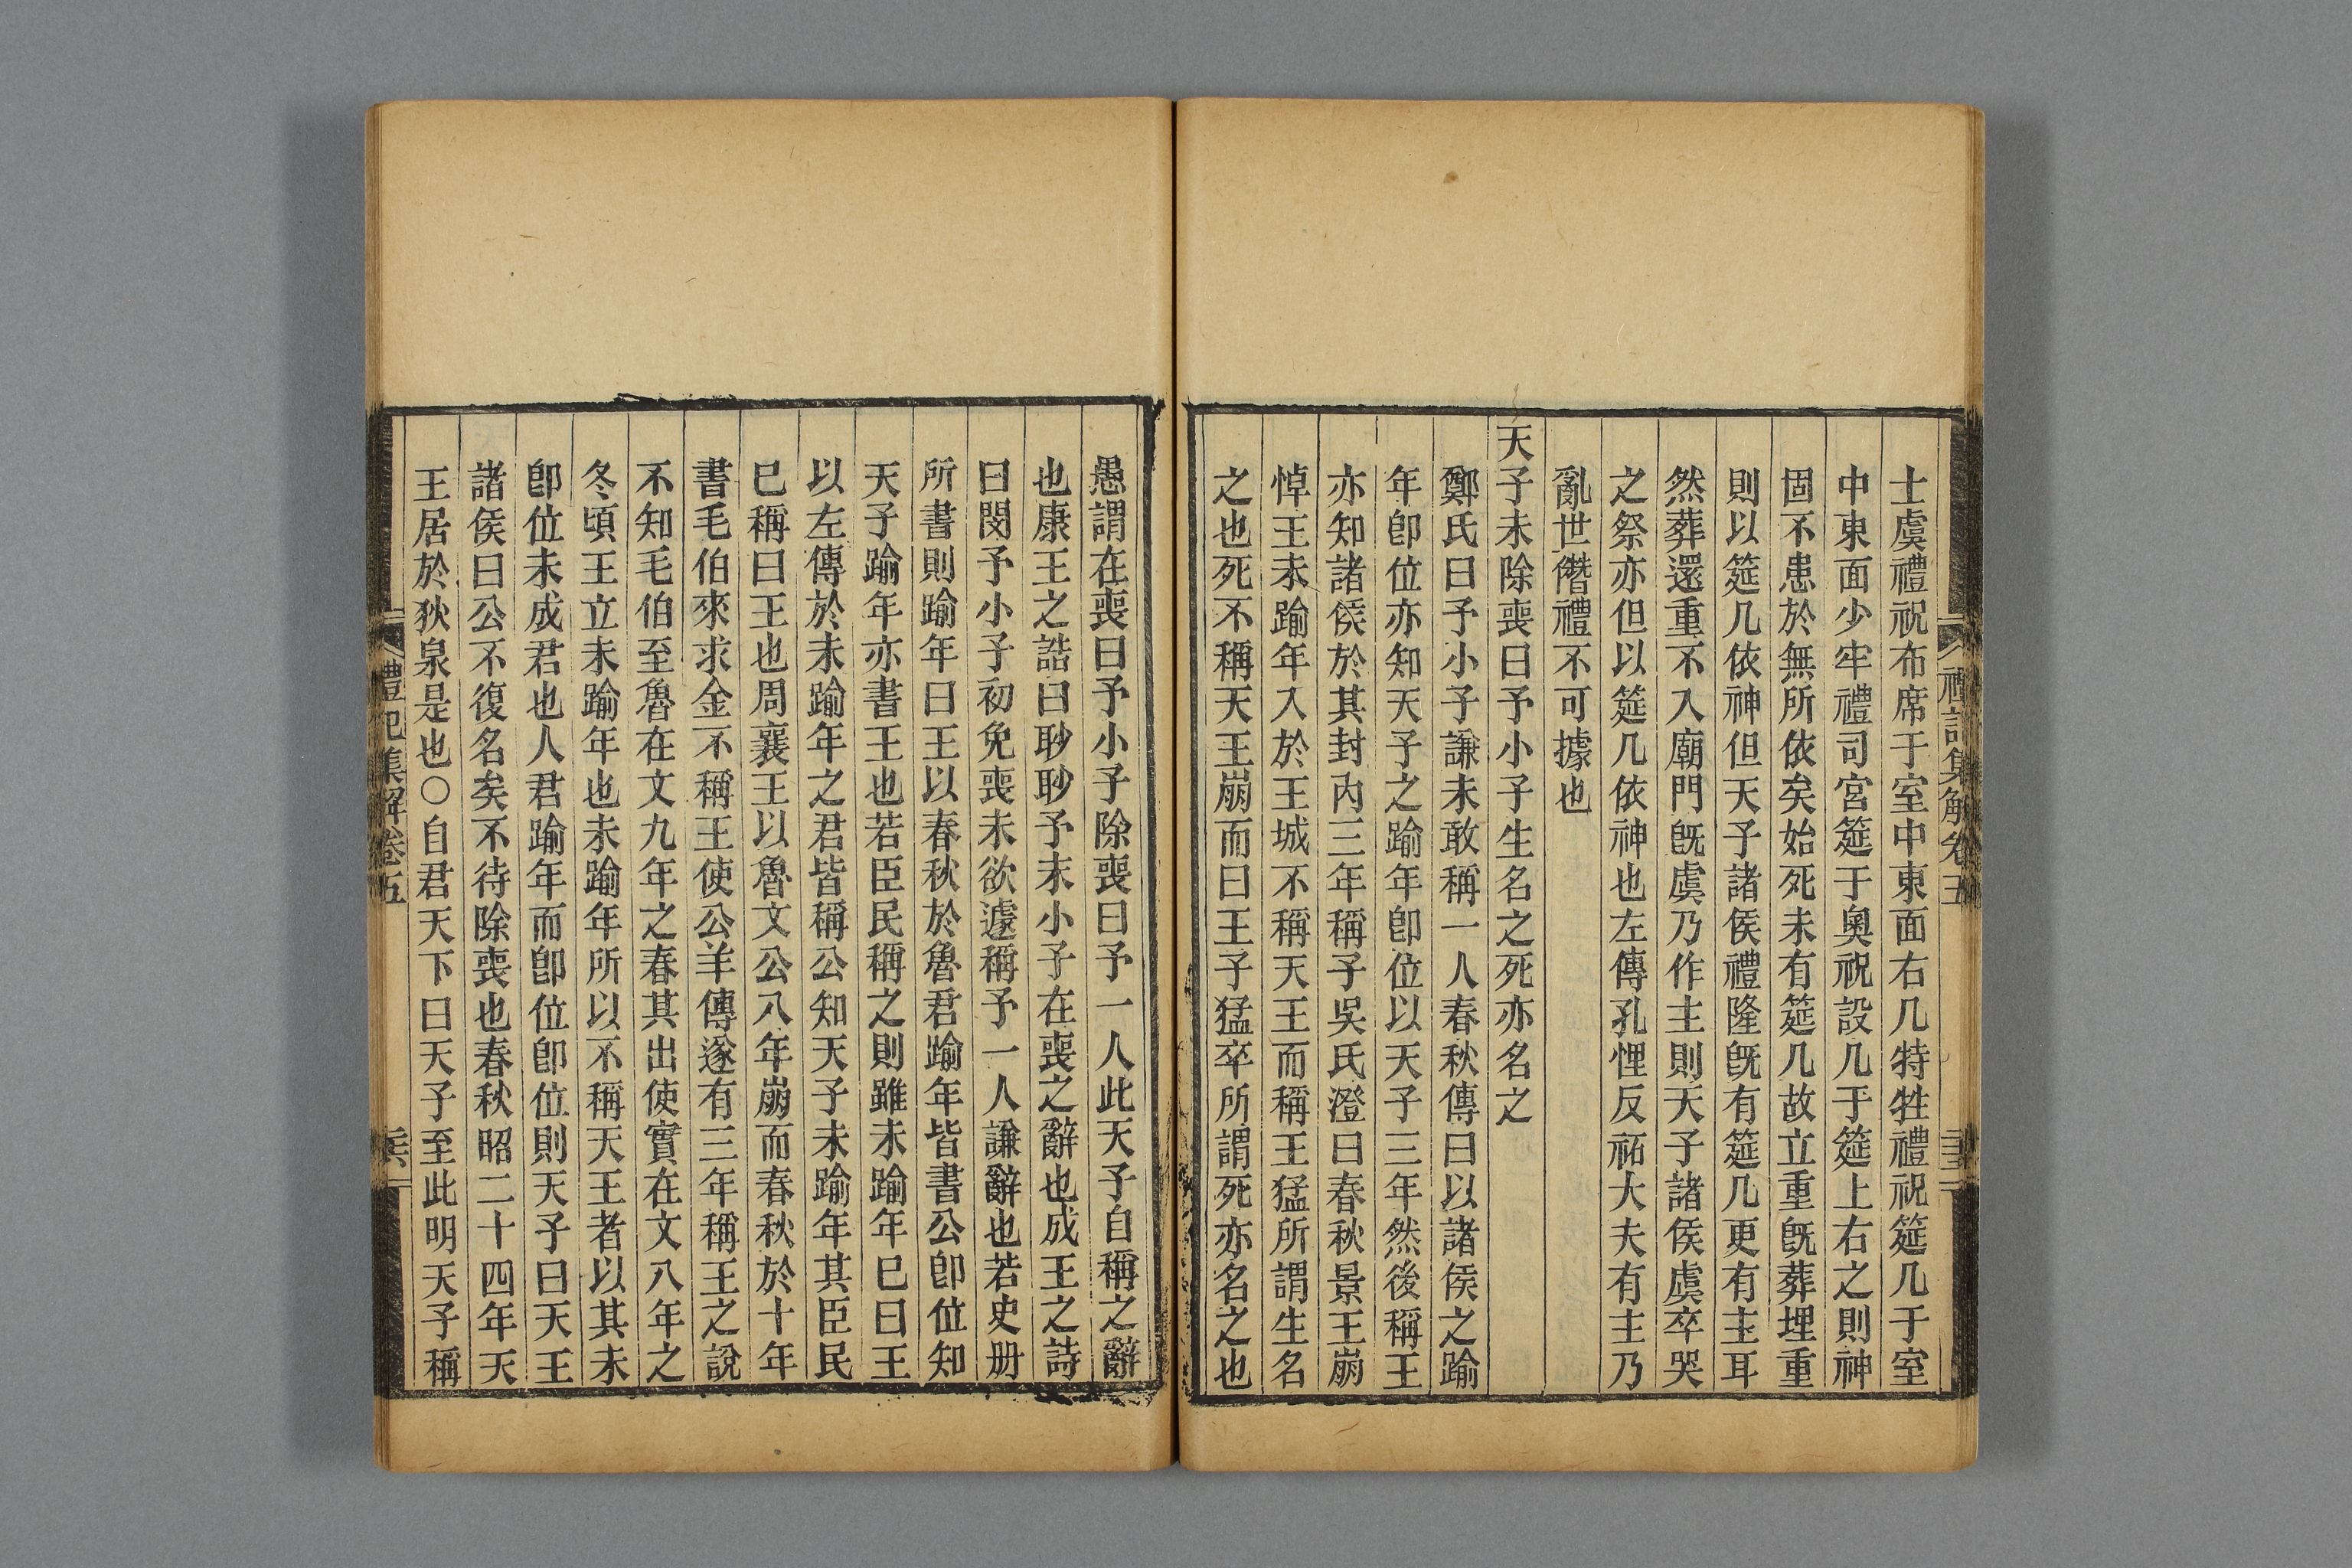 士虞禮祝布席于室中東面右几特牲禮祝筵几于室
中東面少牢禮司宮筵于奧祝設几于筵上右之則神
固不患於無所依矣始死未有筵几故立重旣葬埋重
則以筵几依神但天子諸侯禮隆旣有筵几更有主耳
然葬還重不入廟門旣虞乃作主則天子諸侯虞卒哭
之祭亦但以筵几依神也左傳孔悝反祏大夫有主乃
亂世僭禮不可據也
天子未除喪曰予小子生名之死亦名之
鄭氏曰予小子謙未敢稱一人春秋傳曰以諸侯之踰
年卽位亦知天子之踰年卽位以天子三年然後稱王
亦知諸侯於其封內三年稱子吳氏澄曰春秋景王崩
悼王未踰年入於王城不稱天王而稱王猛所謂生名
之也死不稱天王崩而曰王子猛卒所謂死亦名之也
愚謂在喪曰予小子除喪曰予一人此天子自稱之辭
也康王之誥曰眇眇予末小子在喪之辭也成王之詩
曰閔予小子初免喪未欲遽稱予一人謙辭也若史册
所書則踰年曰王以春秋於魯君踰年皆書公卽位知
天子踰年亦書王也若臣民稱之則雖未踰年已曰王
以左傳於未踰年之君皆稱公知天子未踰年其臣民
已稱曰王也周襄王以魯文公八年崩而春秋於十年
書毛伯來求金不稱王使公羊傳遂有三年稱王之說
不知毛伯至魯在文九年之春其出使實在文八年之
冬頃王立未踰年也未踰年所以不稱天王者以其未
卽位未成君也人君踰年而卽位卽位則天子曰天王
諸侯曰公不復名矣不待除喪也春秋昭二十四年天
王居於狄泉是也○自君天下曰天子至此明天子稱
禮記集解卷五